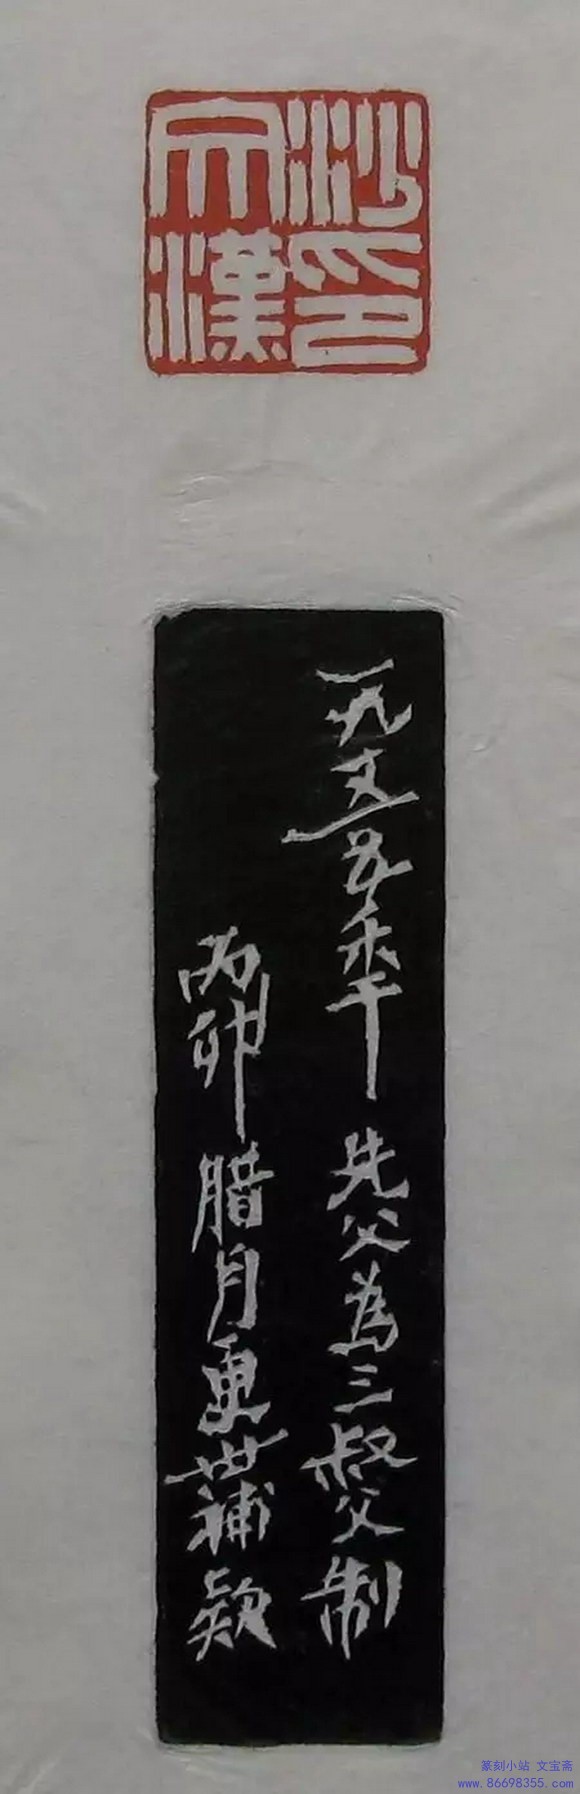 沙文漢印
一九五五年 先父為三叔父制
丙卯腊月更世補款
篆刻小站 文宝斋
www.86698355.com